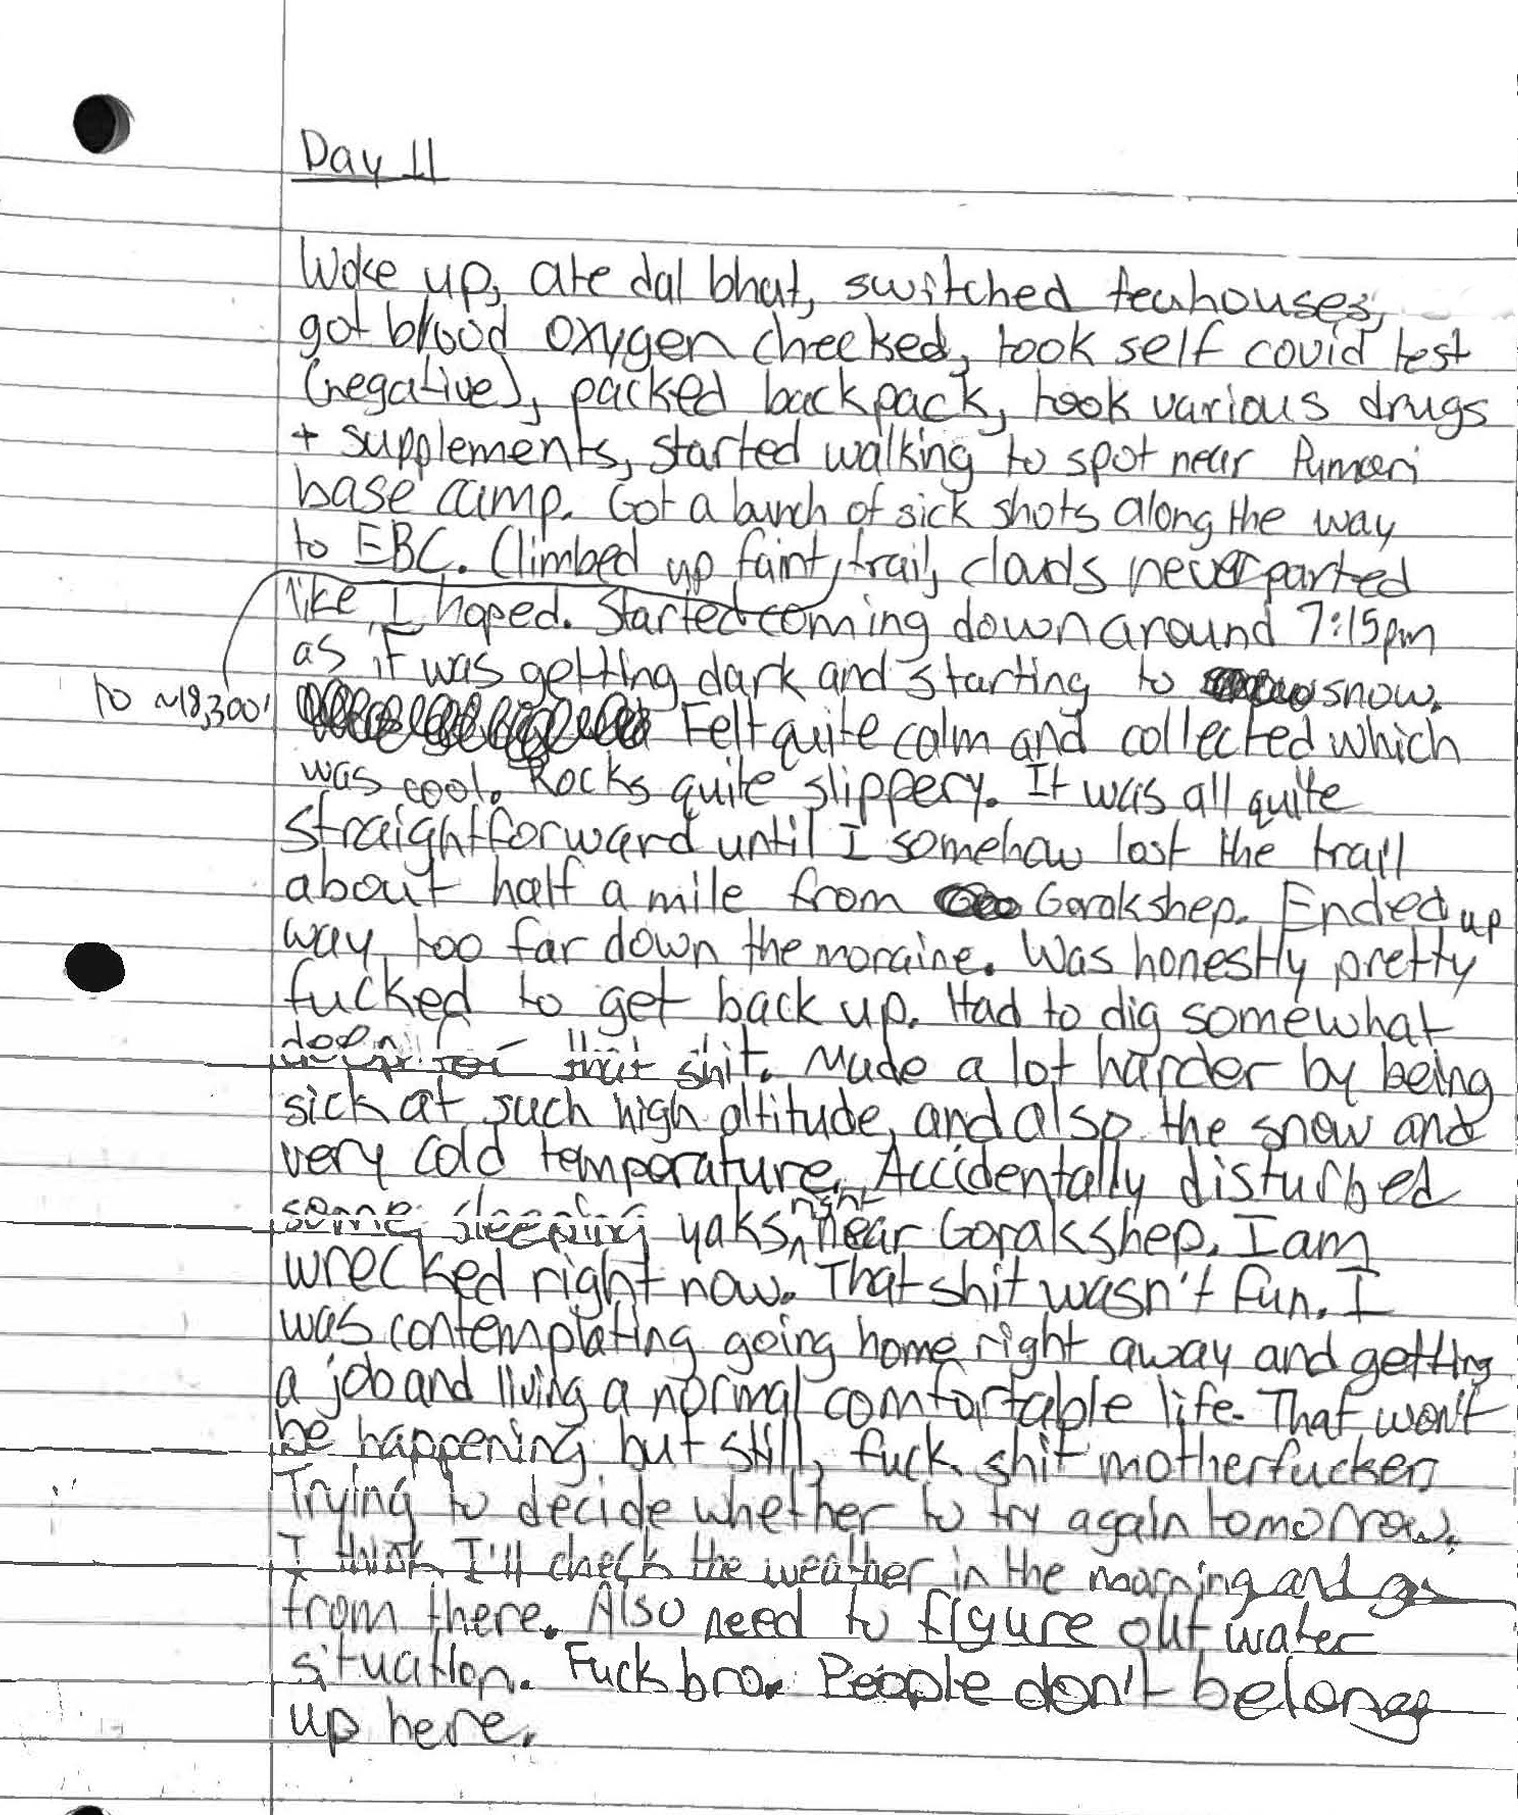 Day 11
Woke up, ate dal bhat, switched teahouses,
got blood oxygen checked, took self covid test
(negative), packed backpack, took various drugs
+ supplements, started walking to spot near Pumori
base camp. Got a bunch of sick shots along the way
to EBC. Climbed up faint trail, clouds never parted
like I hoped. Started coming down around 7:15pm
as it was getting dark and starting to snow.
to ~18,300'
Felt quite calm and collected which
was cool. Rocks quite slippery. It was all quite
straightforward until I somehow lost the trail
about half a mile from Gorakshep. Ended up
way too far down the moraine. Was honestly pretty
fucked to get back up. Had to dig somewhat
deep for that shit. Made a lot harder by being
sick at such high altitude, and also the snow and
very cold temperature. Accidentally disturbed
some sleeping yaks right near Gorakshep. I am
wrecked right now. That shit wasn't fun. I
was contemplating going home right away and getting
a job and living a normal comfortable life. That won't
be happening but still, fuck shit motherfucker.
Trying to decide whether to try again tomorrow.
I think I'll check the weather in the morning and go
from there. Also need to figure out water
situation. Fuck bro. People don't belong
up here.